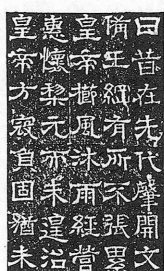 曰昔在先代肇開文
備王綱有所不張累
皇帝櫛風沐雨經營
惠懷黎元亦未遑沿
皇帝方寇自固猶未